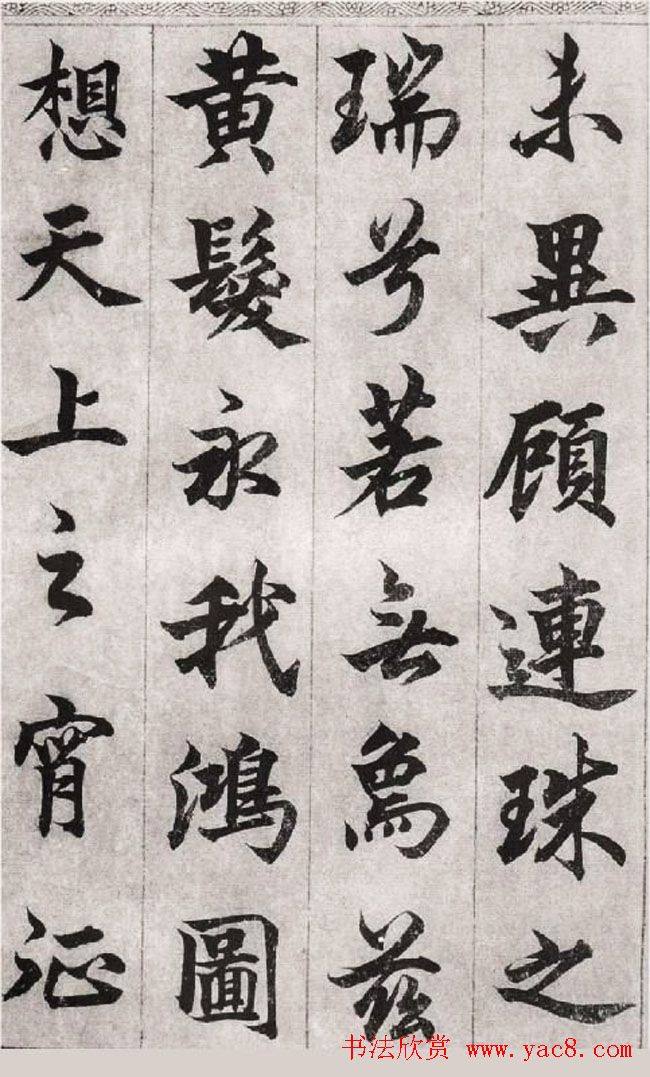 未異顧連珠之
瑞兮若無為茲
黃髮永我鴻圖
想天上之宵征
书法欣赏 www.yac8.com